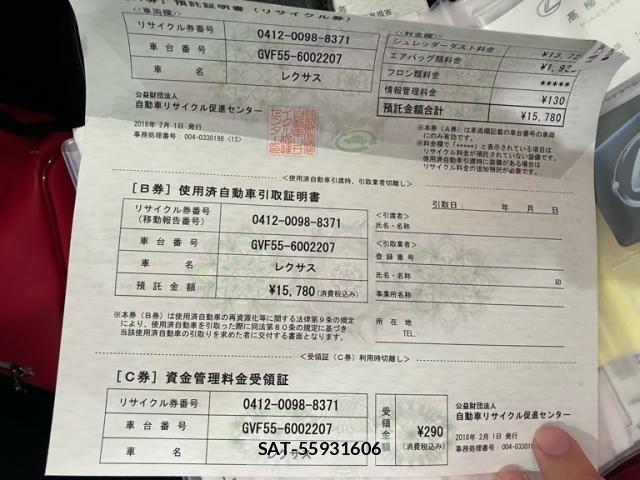 預託証明書(リサイクル券)
<車両欄>
リサイクル券番号 0412-0098-8371
車台番号 GVF55-6002207
車名 レクサス
<料金欄>
シュレッダーダスト料金
エアバッグ類料金
フロン類料金 *****
情報管理料金 ¥130
預託金額合計 ¥15,780
公益財団法人
自動車リサイクル促進センター
2018年 2月 1日 発行
事務処理番号:004-0330198 <1S>
※本券(A券)は車両欄記載の車台番号の車両
にのみ有効です。
※料金欄で「*****」と表示されている項目は
リサイクル料金が預託されていない装備です。
使用済自動車引渡時に装備がある場合は
リサイクル料金の追加預託が必要です。
<使用済自動車引渡時、引取業者切離し>
[B券] 使用済自動車引取証明書
引取日: 年 月 日
リサイクル券番号
(移動報告番号) 0412-0098-8371
車台番号 GVF55-6002207
車名 レクサス
預託金額 ¥15,780 (消費税込み)
<引渡者>
氏名・名称
<引取業者>
登録番号
氏名・名称 印
事業所名称
所在地
TEL.
※本券(B券)は使用済自動車の再資源化等に関する法律第9条の規定
により、使用済自動車を引取った際に同法第80条の規定に基づき
当該使用済自動車の引取りを求めた者に交付する書面となります。
<受領証(C券)利用時切離し>
[C券] 資金管理料金受領証
リサイクル券番号 0412-0098-8371
車台番号 GVF55-6002207
車名 レクサス
受領金額 ¥290
(消費税込み)
公益財団法人
自動車リサイクル促進センター
2018年 2月 1日 発行
事務処理番号:004-0330
SAT-55931606